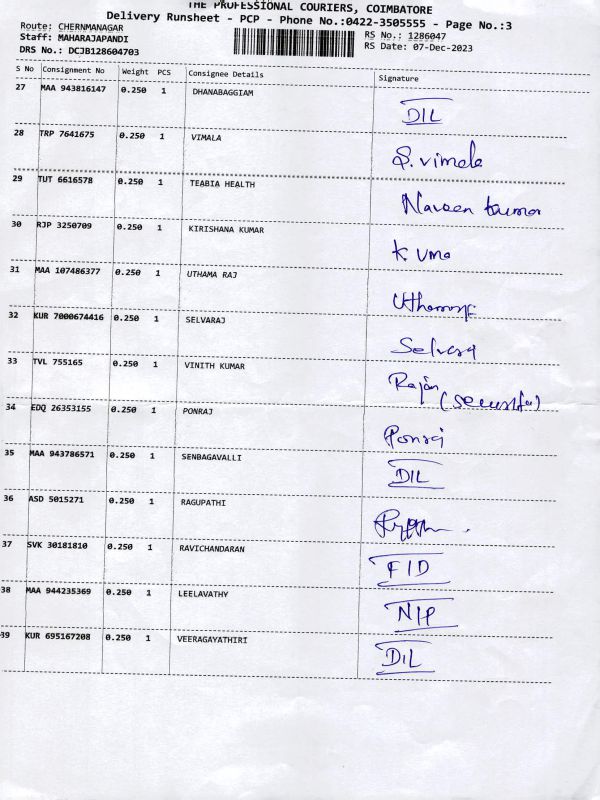 THE PROFESSIONAL COURIERS, COIMBATORE
Delivery Runsheet - PCP - Phone No.:0422-3505555 - Page No.:3
Route: CHERNMANAGAR RS No.: 1286047
Staff: MAHARAJAPANDI RS Date: 07-Dec-2023
DRS No.: DCJB128604703
S No Consignment No Weight PCS Consignee Details Signature
27 MAA 943816147 0.250 1 DHANABAGGIAM DIL
28 TRP 7641675 0.250 1 VIMALA S. vimala
29 TUT 6616578 0.250 1 TEABIA HEALTH Naveen kumar
30 RJP 3250709 0.250 1 KIRISHANA KUMAR K Uma
31 MAA 107486377 0.250 1 UTHAMA RAJ
32 KUR 7000674416 0.250 1 SELVARAJ Selvaraj
33 TVL 755165 0.250 1 VINITH KUMAR Rajan (Security)
34 EDQ 26353155 0.250 1 PONRAJ Ponraj
35 MAA 943786571 0.250 1 SENBAGAVALLI DIL
36 ASD 5015271 0.250 1 RAGUPATHI
37 SVK 30181810 0.250 1 RAVICHANDARAN FID
38 MAA 944235369 0.250 1 LEELAVATHY NIP
39 KUR 695167208 0.250 1 VEERAGAYATHIRI DIL